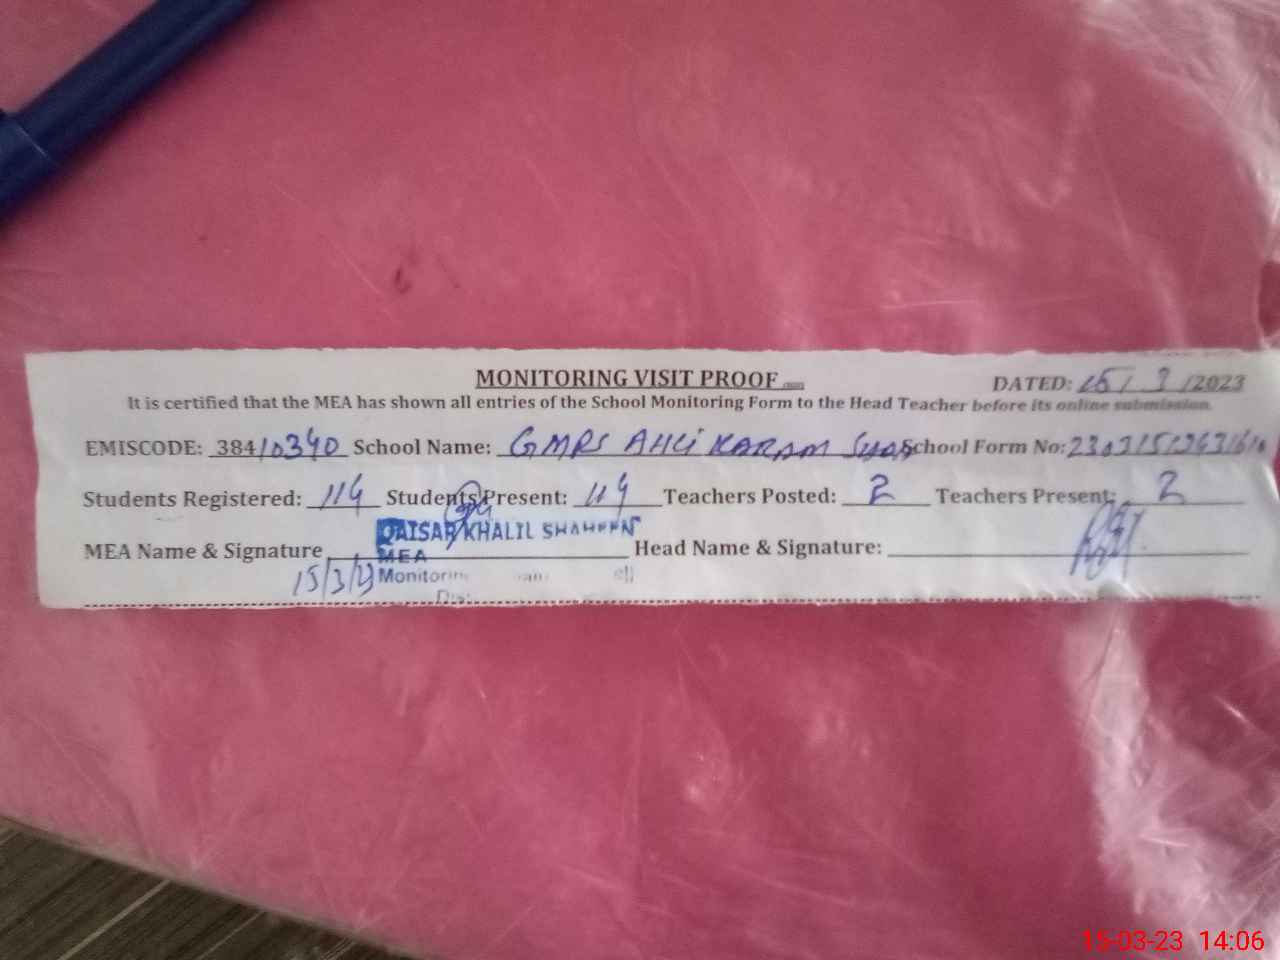 MONITORING VISIT PROOF
DATED: 15/3/2023
It is certified that the MEA has shown all entries of the School Monitoring Form to the Head Teacher before its online submission.
EMISCODE: 38410340 School Name: GMPS AHLI KARAM SHAH School Form No:
Students Registered: 114 Students Present: 114 Teachers Posted: 2 Teachers Present: 2
QAISAR KHALIL SHAHEEN
MEA Name & Signature Head Name & Signature:
MEA
15/3/23 Monitoring
15-03-23 14:06